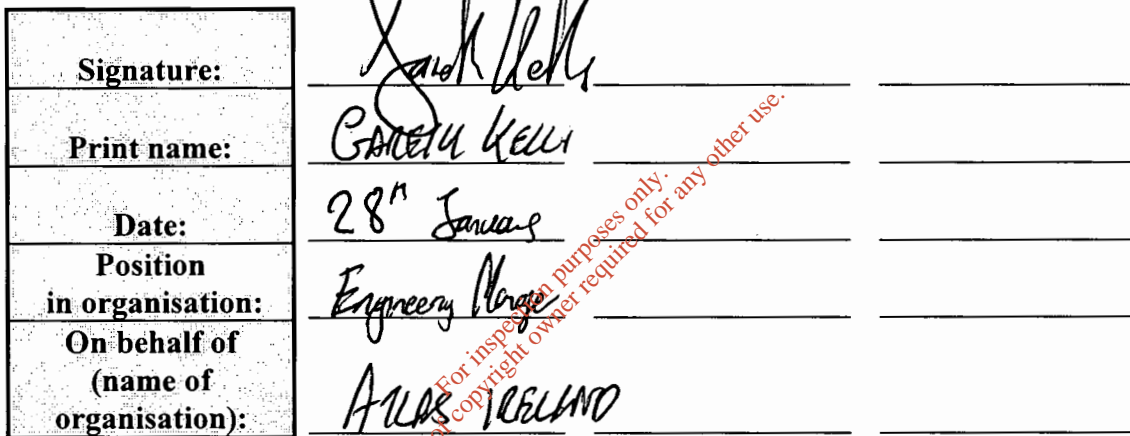 Signature:
Print name: GARETH KELLY
Date: 28th January
Position
in organisation: Engineering Manager
On behalf of
(name of
organisation): ATLAS IRELAND
For inspection purposes only.
of copyright owner required for any other use.